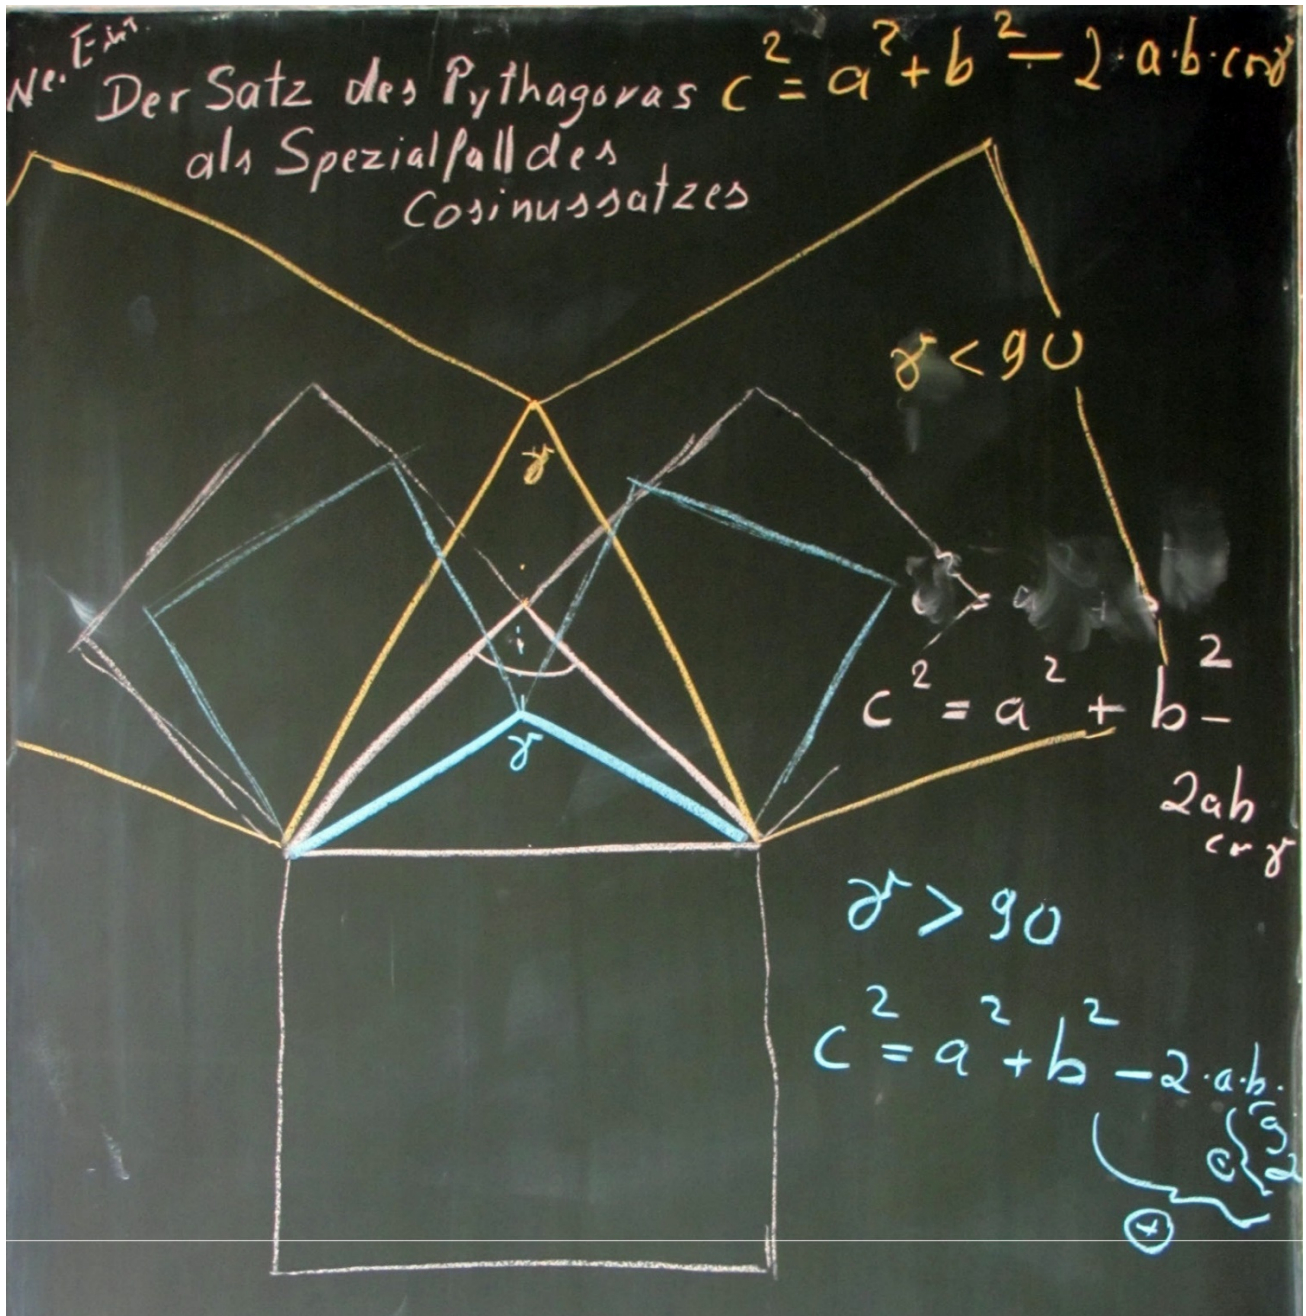 Der Satz des Pythagoras
als Spezialfall des
Cosinussatzes
c² = a² + b² − 2·a·b·cos γ
γ < 90
γ
γ
c² = a² + b² −
2ab
cos γ
γ > 90
c² = a² + b² − 2·a·b·